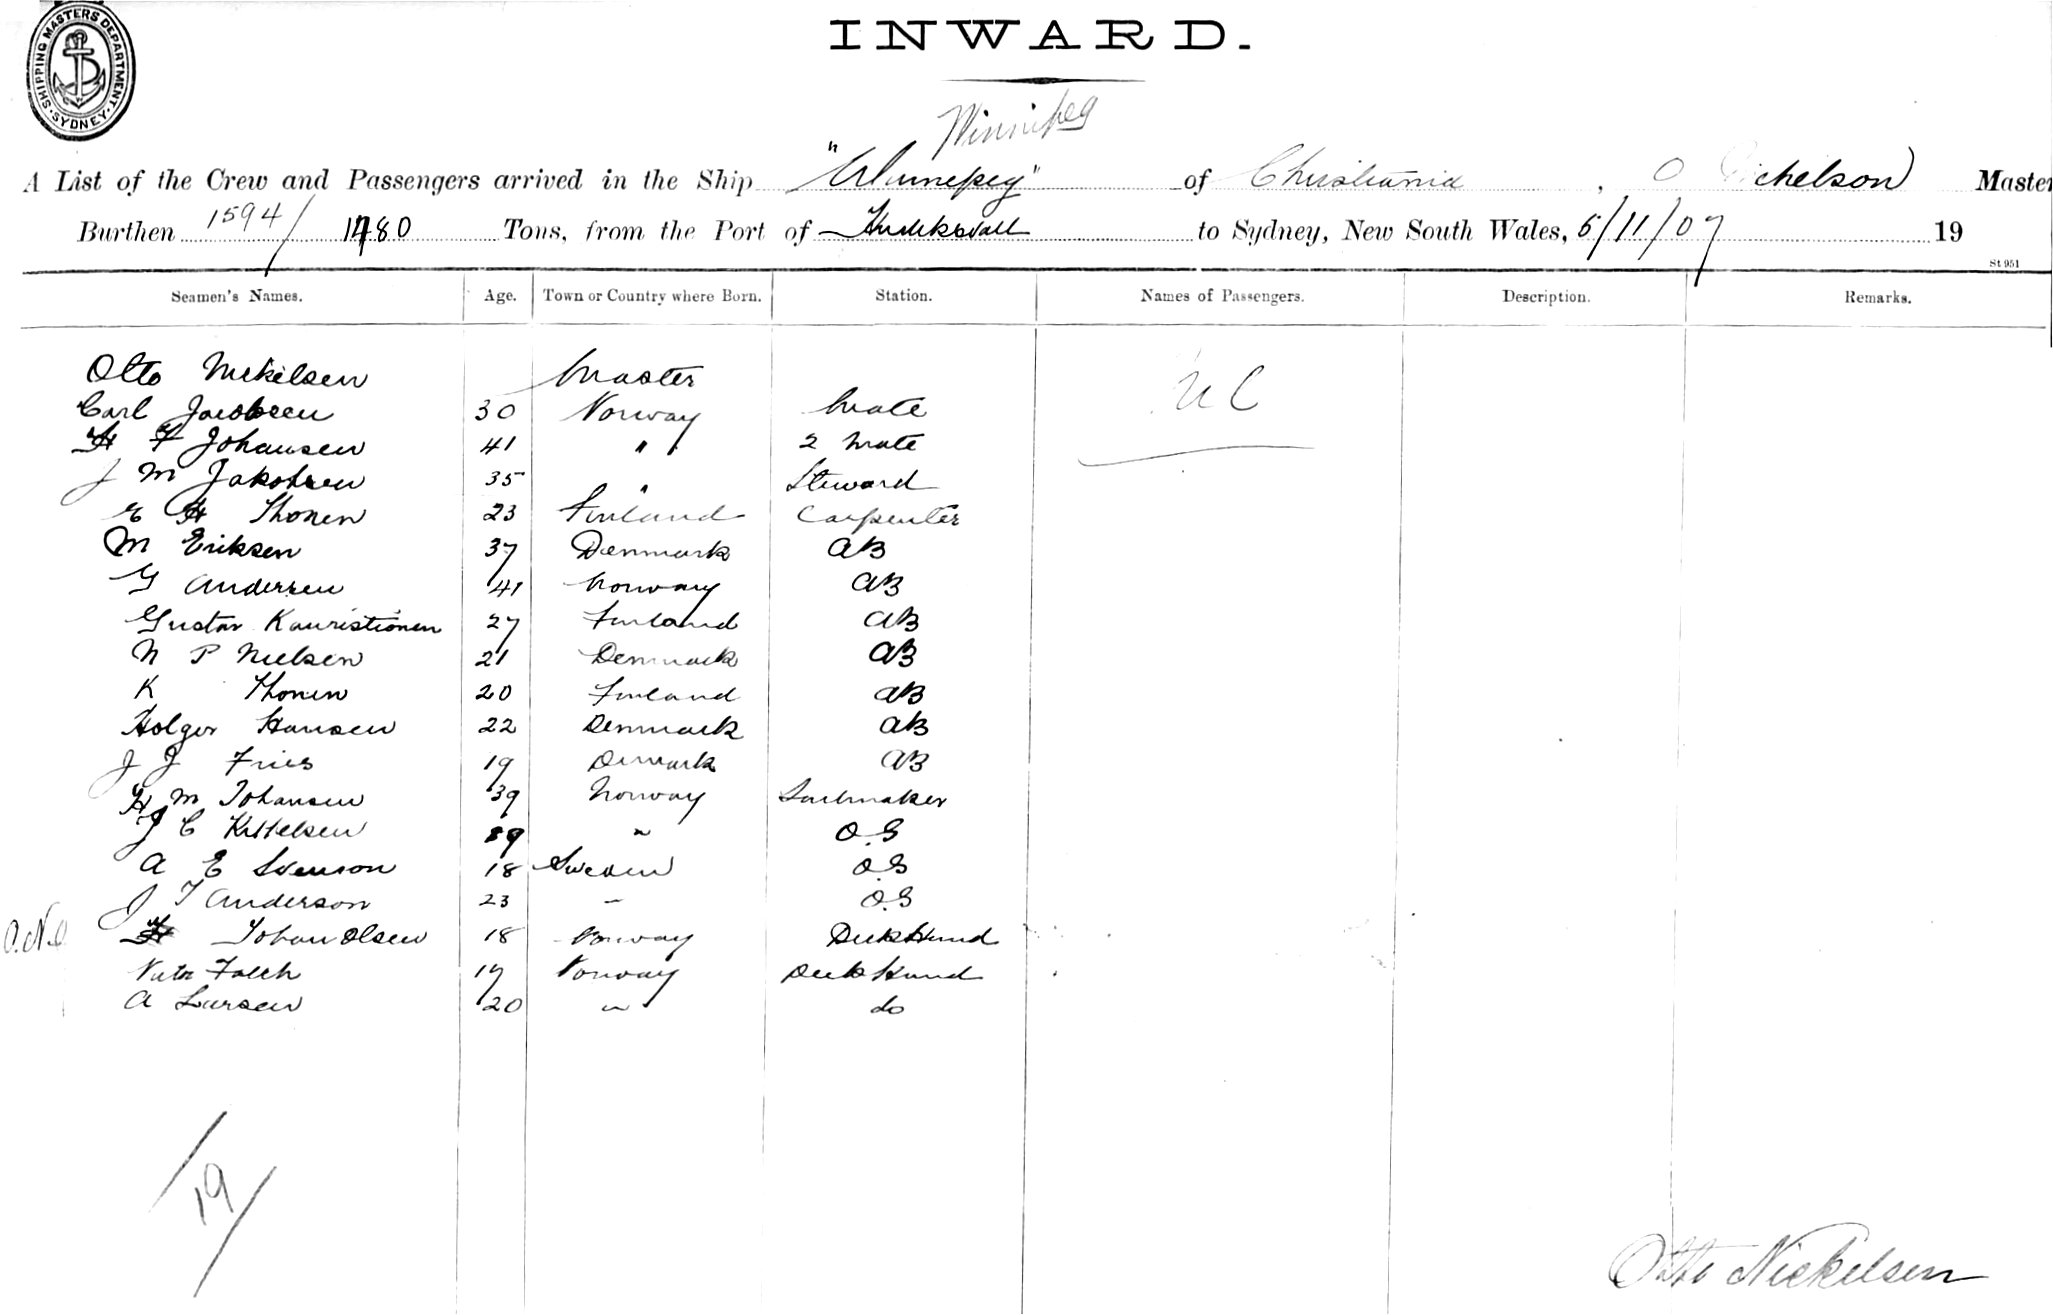 SHIPPING MASTERS DEPARTMENT. SYDNEY
INWARD.
Winnipeg
A List of the Crew and Passengers arrived in the Ship "Winnepeg" of Christiania, O chelson Master
Burthen 1594/1480 Tons, from the Port of Hudiksvall to Sydney, New South Wales, 5/11/07 19
St 951
Seamen's Names. Age. Town or Country where Born. Station. Names of Passengers. Description. Remarks.
Otto Nickelsen Master
Carl Jacobsen 30 Norway Mate
H F Johansen 41 " 2 Mate
J M Jakobsen 35 " Steward
E H Thonen 23 Finland Carpenter
M Eriksen 37 Denmark AB
G Andersen 41 Norway AB
Gustav Kauristionen 27 Finland AB
N P Nielsen 21 Denmark AB
K Thonen 20 Finland AB
Holger Hansen 22 Denmark AB
J J Fries 19 Denmark AB
H M Johansen 39 Norway Sailmaker
J C Kittelsen 19 " O.S
A E Svenson 18 Sweden O.S
J T Anderson 23 " O.S
Johan Olsen 18 Norway Deck Hand
Victor Falch 17 Norway Deck Hand
A Larsen 20 " do
19
Otto Nickelsen